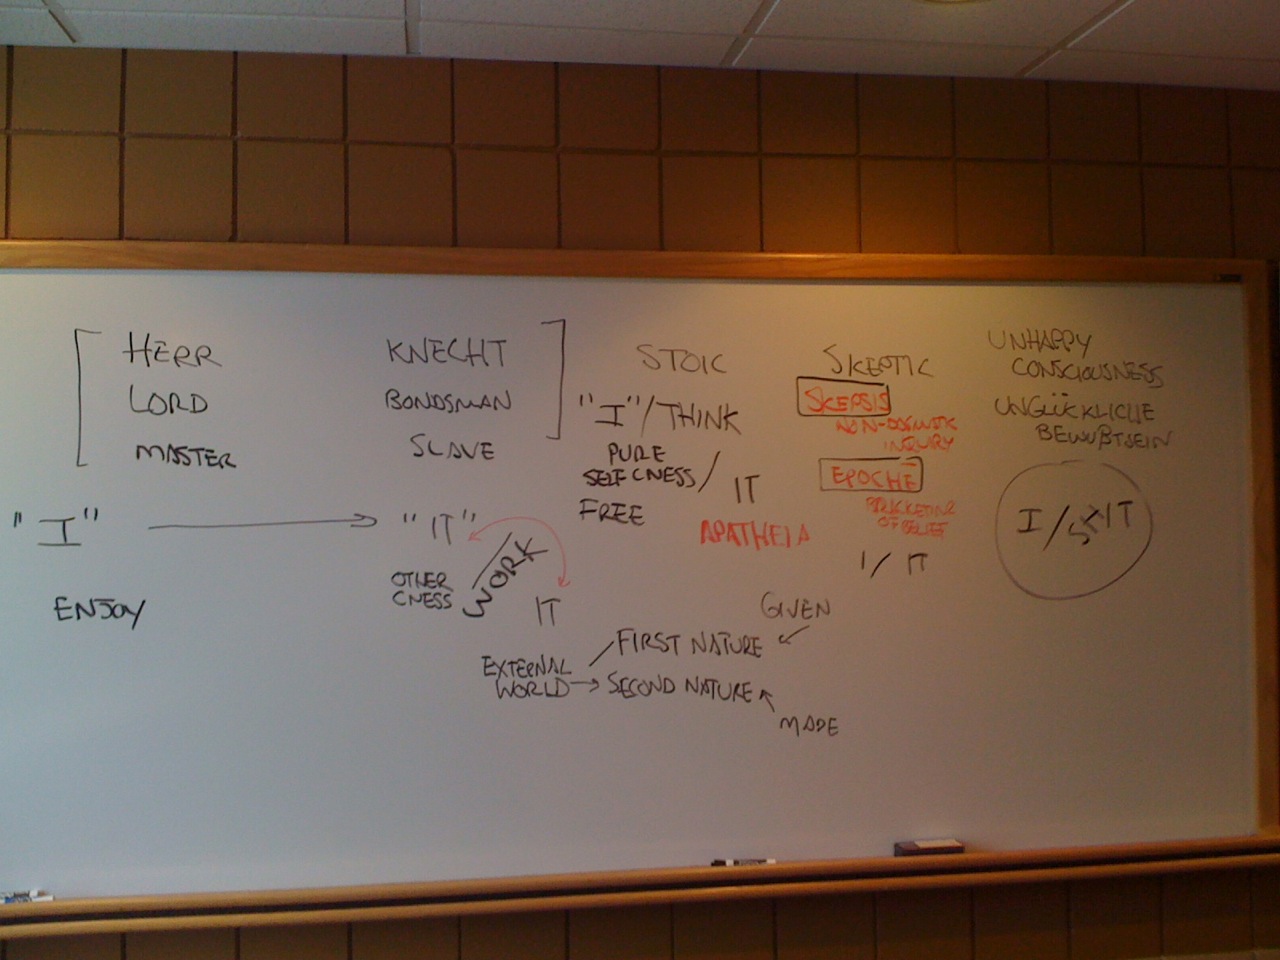 HERR
LORD
MASTER
"I"
ENJOY
KNECHT
BONDSMAN
SLAVE
"IT"
OTHER
CNESS
WORK
IT
EXTERNAL
WORLD
FIRST NATURE
SECOND NATURE
GIVEN
MADE
STOIC
"I"/THINK
PURE
SELF CNESS/
FREE
IT
APATHEIA
SKEPTIC
SKEPSIS
NON-DOGMATIC
INQUIRY
EPOCHĒ
BRACKETING
OF BELIEF
I/IT
UNHAPPY
CONSCIOUSNESS
UNGLÜCKLICHE
BEWUßTSEIN
I/IT